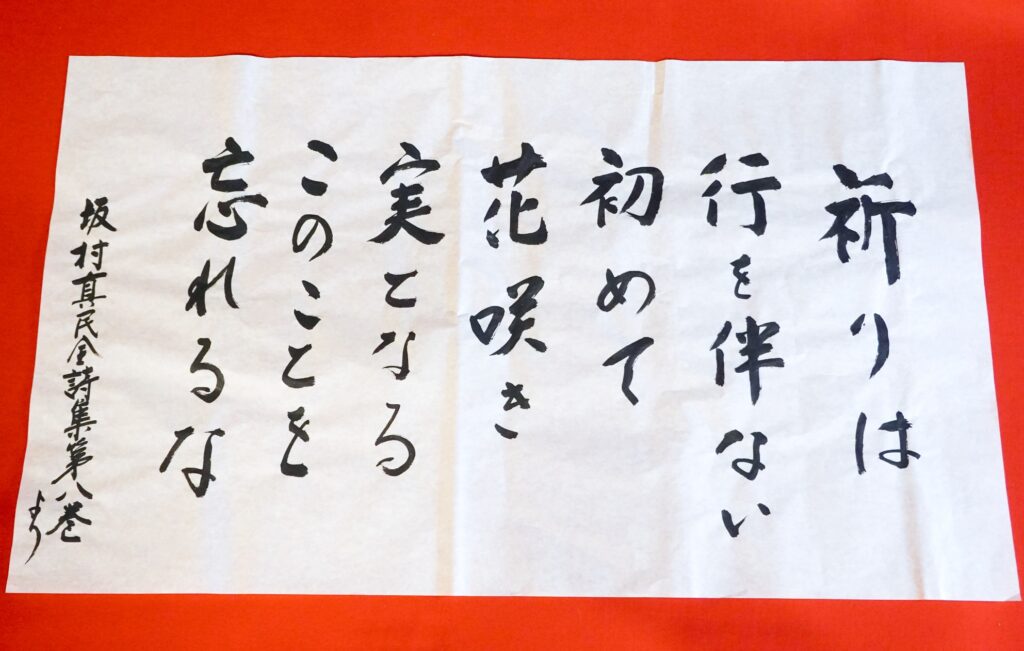 祈りは
行を伴ない
初めて
花咲き
実となる
このことを
忘れるな
坂村真民全詩集第八巻より